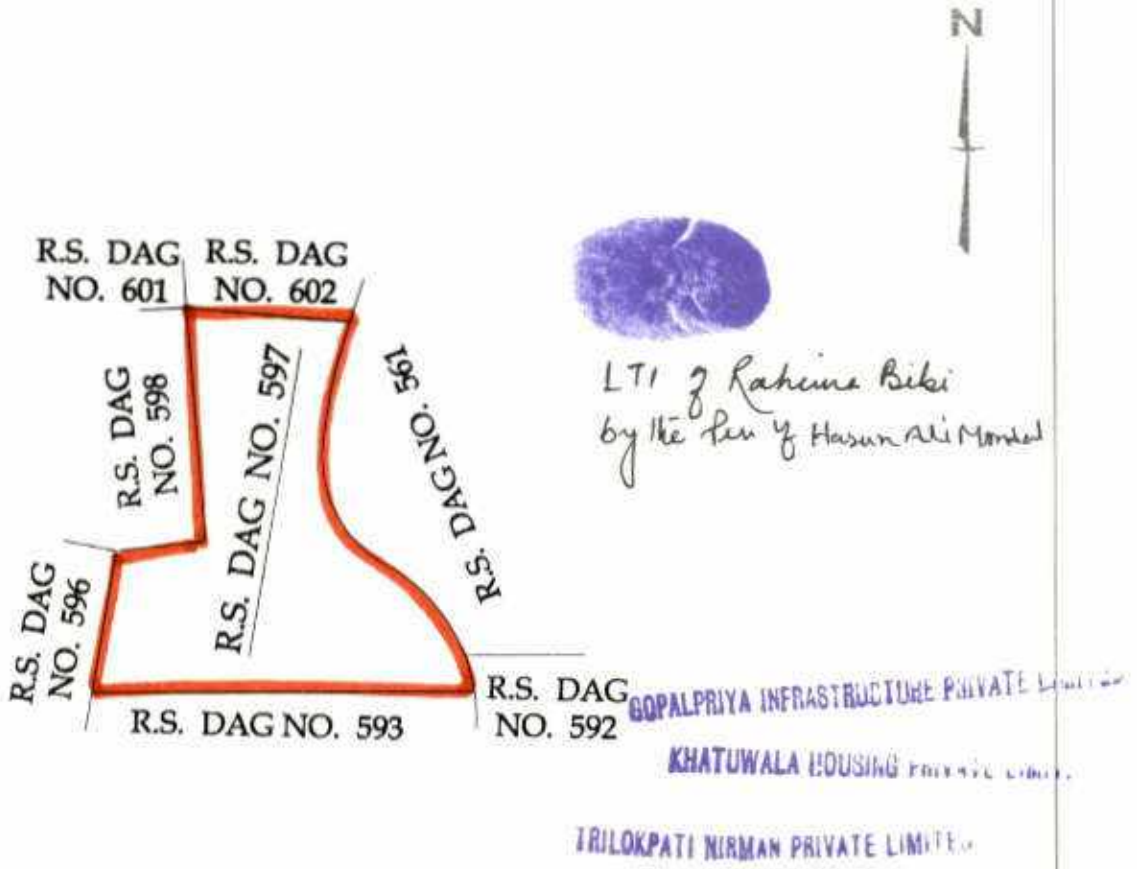 N
R.S. DAG
NO. 601
R.S. DAG
NO. 602
R.S. DAG
NO. 598
R.S. DAG NO. 597
R.S. DAG NO. 561
R.S. DAG
NO. 596
R.S. DAG NO. 593
R.S. DAG
NO. 592
LTI of Rahima Bibi
by the Pen of Hasan Ali Mondal
GOPALPRIYA INFRASTRUCTURE PRIVATE LIMITED
KHATUWALA HOUSING PRIVATE
TRILOKPATI NIRMAN PRIVATE LIMITED